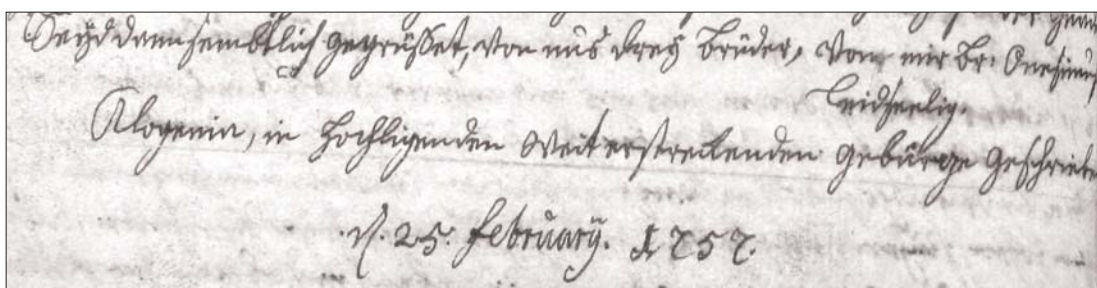 Seyd dann sembtlich gegrüsset, von uns drey brüder, von mir Br. Onesimus
leidseelig.
Alogenia, in hochligenden weit erstreckenden gebürge geschrieben
d. 25. february. 1757.